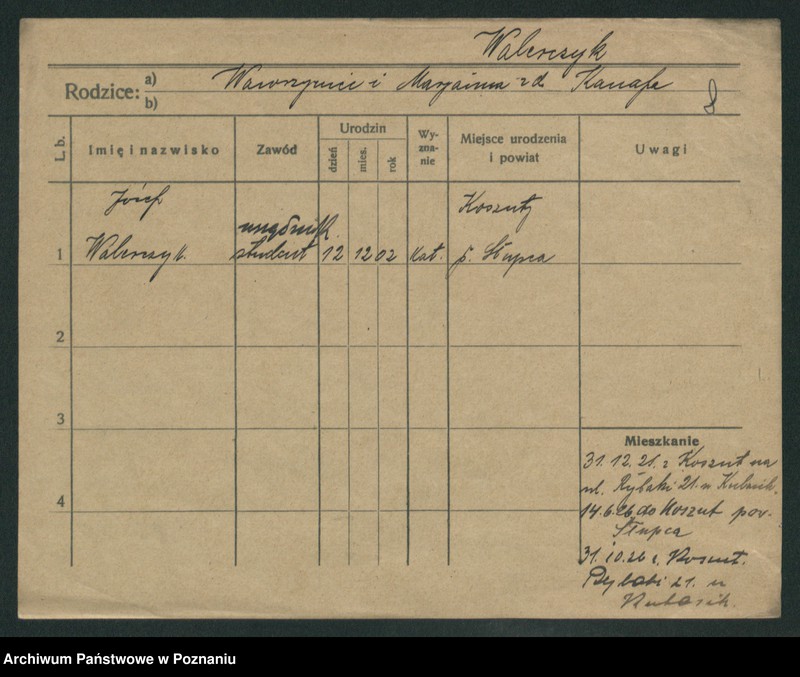 Walerczyk
Rodzice: a) Wawrzyniec i Marjanna z d. Kanafa
b)
L. b. Imię i nazwisko Zawód Urodzin dzień mies. rok Wy-zna-nie Miejsce urodzenia i powiat Uwagi
Józef Koszuty
urzędnik
1 Walerczyk. student 12 12 02 kat. p. Słupca
2
3
4
Mieszkanie
31. 12. 21. z Koszut na
ul. Rybaki 21. u Kubasik.
14.6.26 do Koszut pow.
Słupca
31. 10. 26 z Koszut.
Rybaki 21. u
Kubasik.
Archiwum Państwowe w Poznaniu